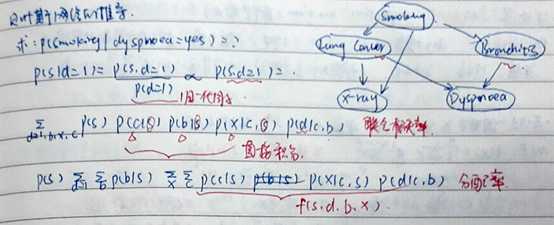 贝叶斯网络的推导.
求: p(smoking | dyspnoea=yes) = ?
p(s|d=1) = p(s.d=1) / p(d=1) ∝ p(s.d=1) =
归一化因子
Σ d=1.b.x.c p(s) p(c|s) p(b|s) p(x|c.s) p(d|c.b) 联合概率.
因子积分
p(s) Σ d=1 Σ b p(b|s) Σ x Σ c p(c|s) p(b|s) p(x|c.s) p(d|c.b) 分配率
f(s.d.b.x)
Smoking
Lung Cancer
Bronchitis
x-ray
Dyspnoea